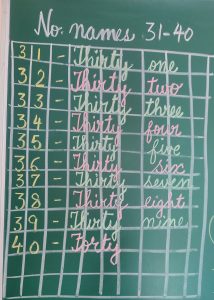 No. names 31-40
31 - Thirty one
32 - Thirty two
33 - Thirty three
34 - Thirty four
35 - Thirty five
36 - Thirty six
37 - Thirty seven
38 - Thirty eight
39 - Thirty nine
40 - Forty